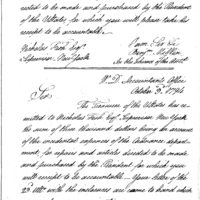 nected to be made and purchased by the President
of the UStates, for which you will please take his
receipt to be accountable.
Nicholas Fish Esqr
Supervisor New York
W. D. Accountants Office
October 3d 1794
Sir,
The Treasurer of the UStates has re-
mitted to Nicholas Fish Esqr Supervisor New York
the sum of three thousand dollars being for account
of the incidental expences of the Ordnance depart-
ment, for repairs and articles directed to be made
and purchased by the President for which you
will receipt to be accountable. Your letter of the
Ulto with the inclosures are came to hand which